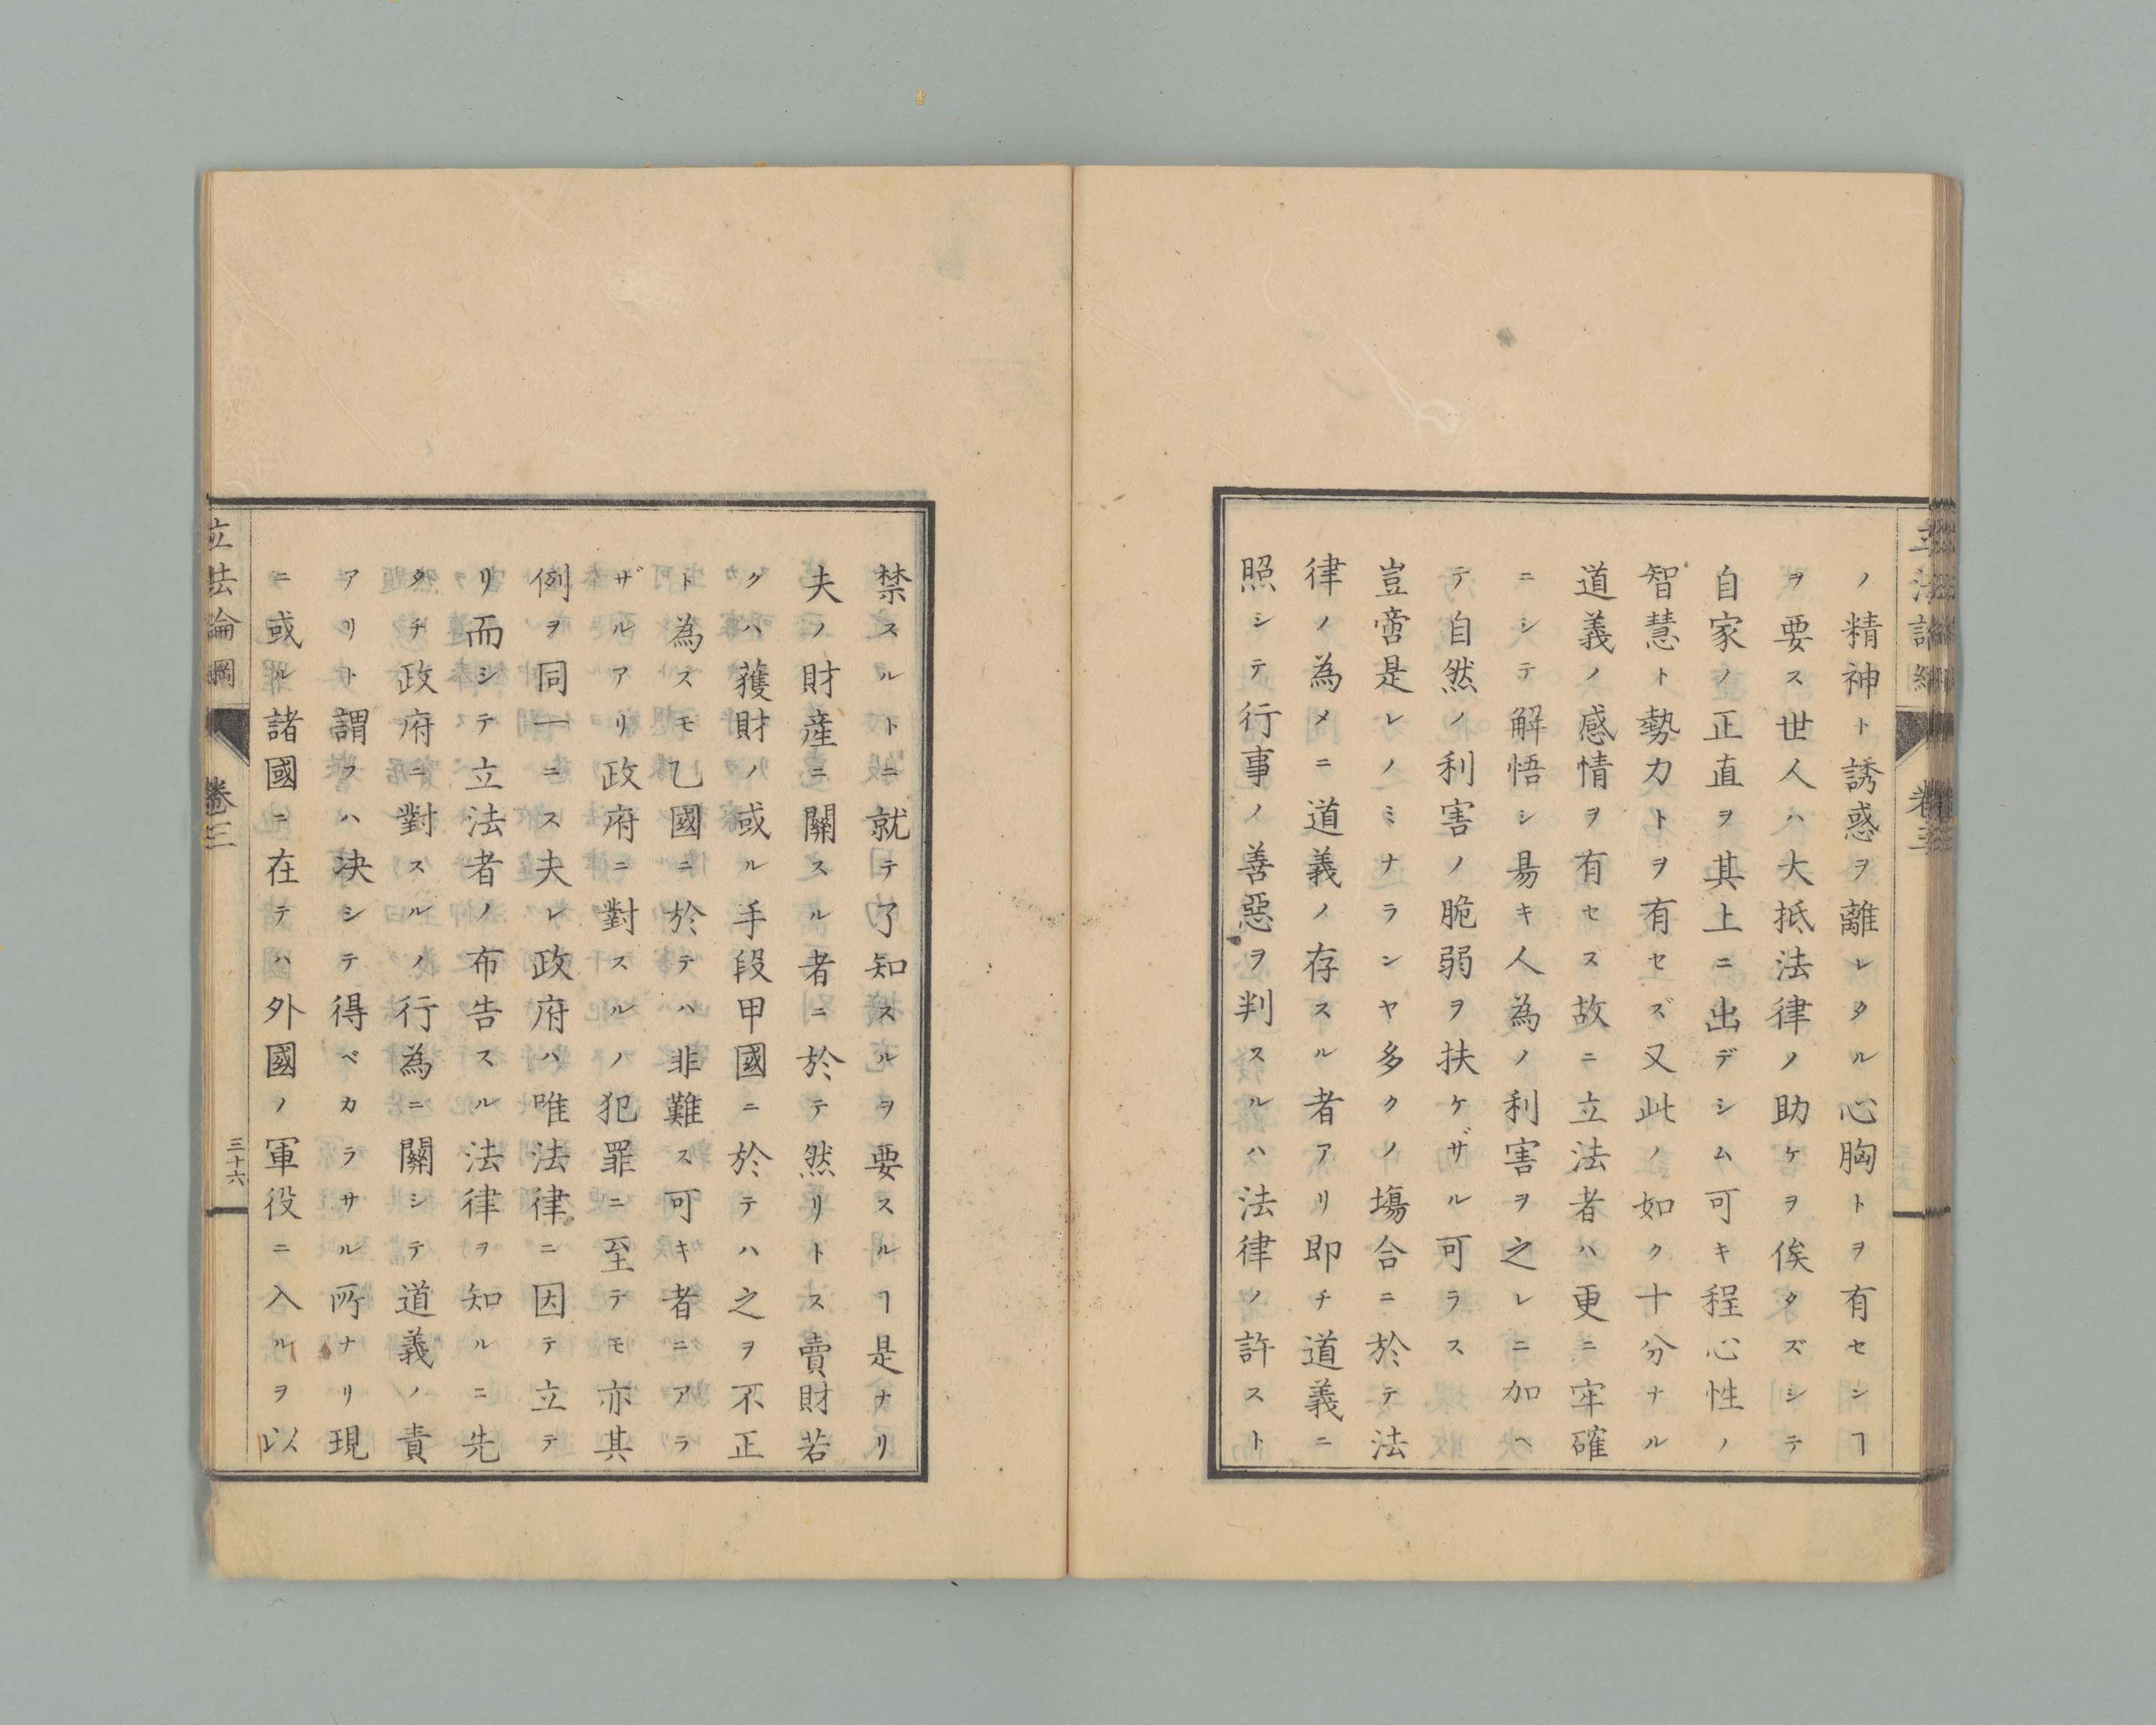 ノ精神ト誘惑ヲ離レタル心胸トヲ有セシヿ
ヲ要ス世人ハ大抵法律ノ助ケヲ俟タズシテ
自家ノ正直ヲ其上ニ出デシム可キ程心性ノ
智慧ト勢力トヲ有セズ又此ノ如ク十分ナル
道義ノ感情ヲ有セス故ニ立法者ハ更ニ牢確
ニシテ解悟シ易キ人為ノ利害ヲ之レニ加ヘ
テ自然ノ利害ノ脆弱ヲ扶ケザル可ラス
豈啻是レノミナランヤ多クノ塲合ニ於テ法
律ノ為メニ道義ノ存スル者アリ即チ道義ニ
照シテ行事ノ善惡ヲ判スルハ法律ノ許スト
禁スルトニ就テ了知スルヲ要スルヿ是ナリ
夫ノ財産ニ關スル者ニ於テ然リトス賣財若
クハ獲財ノ或ル手段甲國ニ於テハ之ヲ不正
ト為スモ乙國ニ於テハ非難ス可キ者ニアラ
ザルアリ政府ニ對スルノ犯罪ニ至テモ亦其
例ヲ同一ニス夫レ政府ハ唯法律ニ因テ立テ
リ而シテ立法者ノ布告スル法律ヲ知ルニ先
タチ政府ニ對スルノ行為ニ關シテ道義ノ責
アリト謂フハ决シテ得ベカラサル所ナリ現
ニ或ル諸國ニ在テハ外國ノ軍役ニ入ルヲ以
立法論綱
卷三
三十六